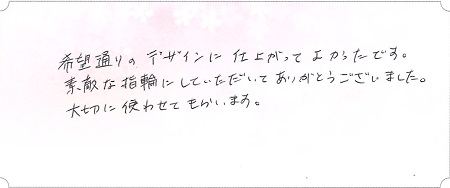 希望通りのデザインに仕上がってよかったです。
素敵な指輪にしていただいてありがとうございました。
大切に使わせてもらいます。